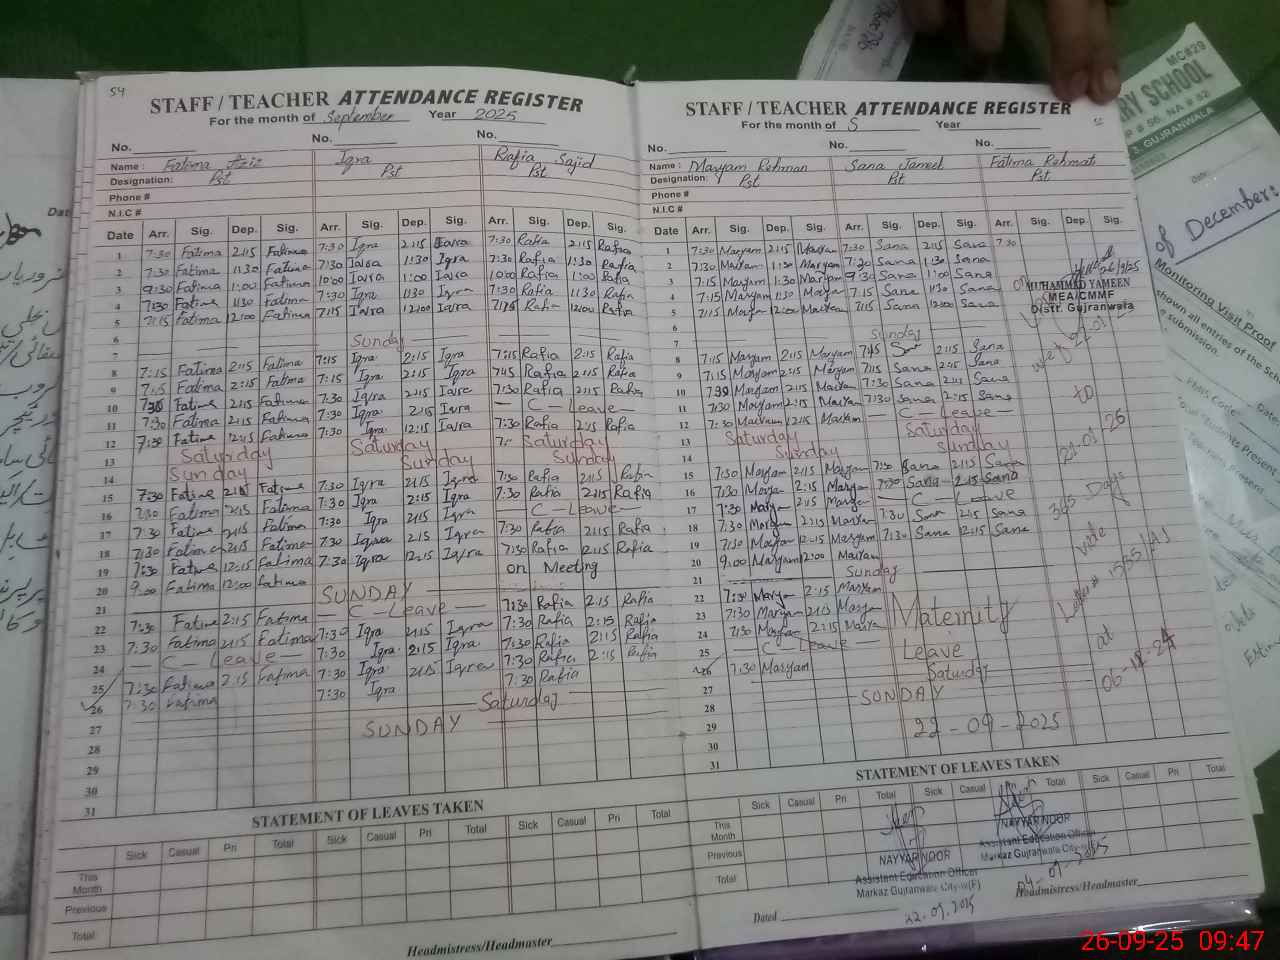 54
STAFF / TEACHER ATTENDANCE REGISTER
For the month of September Year 2025
No. No. No.
Name : Fatima Aziz Iqra Rafia Sajid
Designation: Pst Pst Pst
Phone #
N.I.C #
Date Arr. Sig. Dep. Sig. Arr. Sig. Dep. Sig. Arr. Sig. Dep. Sig.
1 7:30 Fatima 2:15 Fatima 7:30 Iqra 2:15 Iqra 7:30 Rafia 2:15 Rafia
2 7:30 Fatima 11:30 Fatima 7:30 Iqra 11:30 Iqra 7:30 Rafia 11:30 Rafia
3 9:30 Fatima 1:00 Fatima 10:00 Iqra 1:00 Iqra 10:00 Rafia 1:00 Rafia
4 7:30 Fatima 11:30 Fatima 7:30 Iqra 11:30 Iqra 7:30 Rafia 11:30 Rafia
5 7:15 Fatima 12:00 Fatima 7:15 Iqra 12:00 Iqra 7:15 Rafia 12:00 Rafia
6
7 Sunday
8 7:15 Fatima 2:15 Fatima 7:15 Iqra 2:15 Iqra 7:15 Rafia 2:15 Rafia
9 7:15 Fatima 2:15 Fatima 7:15 Iqra 2:15 Iqra 7:45 Rafia 2:15 Rafia
10 7:30 Fatima 2:15 Fatima 7:30 Iqra 2:15 Iqra 7:30 Rafia 2:15 Rafia
11 7:30 Fatima 2:15 Fatima 7:30 Iqra 2:15 Iqra — C — Leave —
12 7:30 Fatima 12:15 Fatima 7:30 Iqra 12:15 Iqra 7:30 Rafia 2:15 Rafia
13 Saturday Saturday Saturday
14 Sunday Sunday Sunday
15 7:30 Fatima 2:15 Fatima 7:30 Iqra 2:15 Iqra 7:30 Rafia 2:15 Rafia
16 7:30 Fatima 2:15 Fatima 7:30 Iqra 2:15 Iqra 7:30 Rafia 2:15 Rafia
17 7:30 Fatima 2:15 Fatima 7:30 Iqra 2:15 Iqra — C — Leave —
18 7:30 Fatima 2:15 Fatima 7:30 Iqra 2:15 Iqra 7:30 Rafia 2:15 Rafia
19 7:30 Fatima 12:15 Fatima 7:30 Iqra 12:15 Iqra 7:30 Rafia 12:15 Rafia
20 9:00 Fatima 12:00 Fatima on Meeting
21 SUNDAY
22 7:30 Fatima 2:15 Fatima — C — Leave — 7:30 Rafia 2:15 Rafia
23 7:30 Fatima 2:15 Fatima 7:30 Iqra 2:15 Iqra 7:30 Rafia 2:15 Rafia
24 — C — Leave — 7:30 Iqra 2:15 Iqra 7:30 Rafia 2:15 Rafia
25 7:30 Fatima 2:15 Fatima 7:30 Iqra 2:15 Iqra 7:30 Rafia 2:15 Rafia
26 7:30 Fatima 7:30 Iqra 7:30 Rafia
27 Saturday
28 SUNDAY
29
30
31
STATEMENT OF LEAVES TAKEN
Sick Casual Pri Total Sick Casual Pri Total Sick Casual Pri Total
This Month
Previous
Total
Headmistress/Headmaster
STAFF / TEACHER ATTENDANCE REGISTER
For the month of S Year
No. No. No.
Name : Maryam Rehman Sana Jameel Fatima Rehmat
Designation: Pst Pst Pst
Phone #
N.I.C #
Date Arr. Sig. Dep. Sig. Arr. Sig. Dep. Sig. Arr. Sig. Dep. Sig.
1 7:30 Maryam 2:15 Maryam 7:30 Sana 2:15 Sana 7:30
2 7:30 Maryam 1:30 Maryam 7:30 Sana 1:30 Sana
3 7:15 Maryam 1:30 Maryam 9:30 Sana 1:00 Sana
4 7:15 Maryam 11:30 Maryam 7:15 Sana 11:30 Sana
5 7:15 Maryam 12:00 Maryam 7:15 Sana 12:00 Sana
6
7 Sunday
8 7:15 Maryam 2:15 Maryam 7:45 Sana 2:15 Sana
9 7:15 Maryam 2:15 Maryam 7:15 Sana 2:15 Sana
10 7:30 Maryam 2:15 Maryam 7:30 Sana 2:15 Sana
11 7:30 Maryam 2:15 Maryam 7:30 Sana 2:15 Sana
12 7:30 Maryam 12:15 Maryam — C — Leave —
13 Saturday Saturday
14 Sunday Sunday
15 7:30 Maryam 2:15 Maryam 7:30 Sana 2:15 Sana
16 7:30 Maryam 2:15 Maryam 7:30 Sana 2:15 Sana
17 7:30 Maryam 2:15 Maryam — C — Leave
18 7:30 Maryam 2:15 Maryam 7:30 Sana 2:15 Sana
19 7:30 Maryam 12:15 Maryam 7:30 Sana 12:15 Sana
20 9:00 Maryam 12:00 Maryam
21 Sunday
22 7:30 Maryam 2:15 Maryam
23 7:30 Maryam 2:15 Maryam
24 7:30 Maryam 2:15 Maryam
25 — C — Leave
26 7:30 Maryam
27 Saturday
28 SUNDAY
29
30
31
Maternity
Leave
22-09-2025
26/9/25
MUHAMMAD YAMEEN
MEA/CMMF
Distt. Gujranwala
to
21-01-26
365 Days
vide
Letter # 1555/AS
at
06-12-24
STATEMENT OF LEAVES TAKEN
Sick Casual Pri Total Sick Casual Total Sick Casual Pri Total
This Month
Previous
Total
NAYYAR NOOR
Assistant Education Officer
Markaz Gujranwala City-iv(F)
22.09.2025
NAYYAR NOOR
Assistant Education Officer
Markaz Gujranwala City
Dated
Headmistress/Headmaster
MC#29
RY SCHOOL
# 56, NA # 52
GUJRANWALA
Date:
of December:
Monitoring Visit Proof
shown all entries of the Sch
submission.
26-09-25 09:47